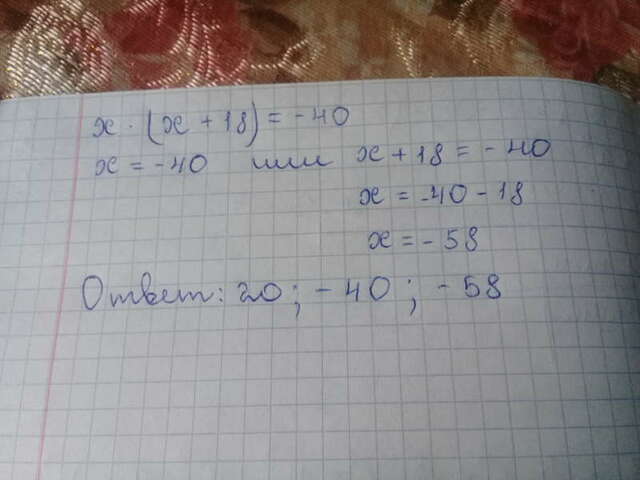 x · (x + 18) = -40
x = -40 или x + 18 = -40
x = -40 - 18
x = -58
Ответ: 20; -40; -58